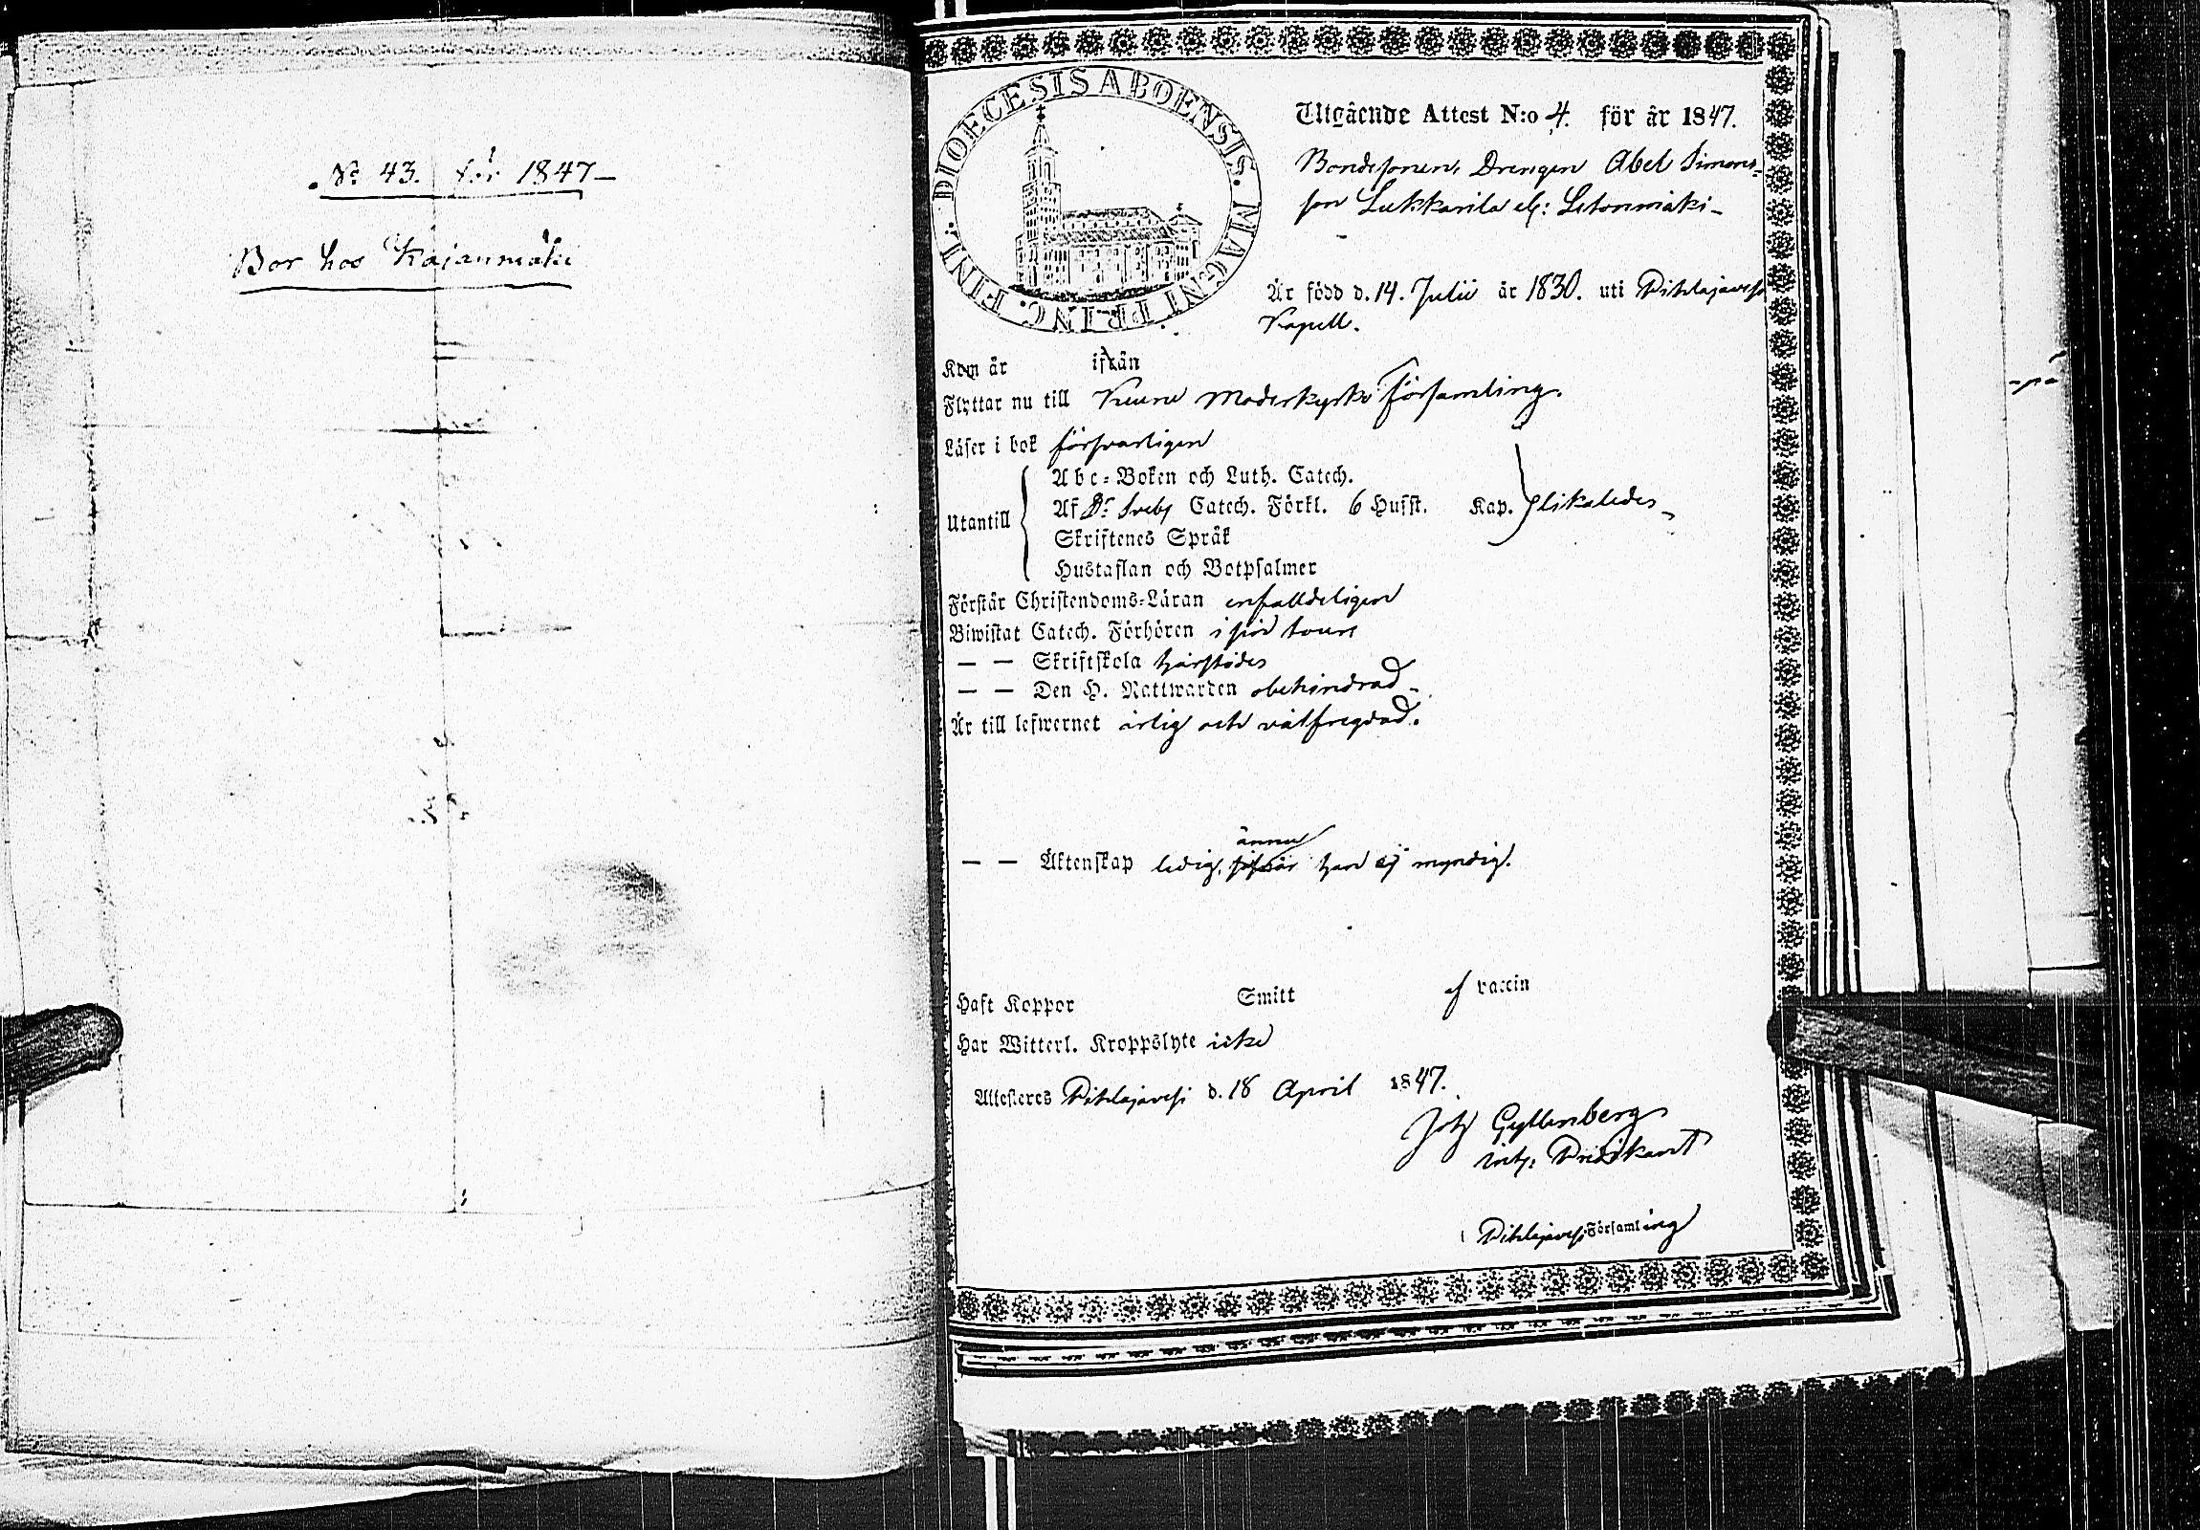 No 43. för 1847
Bor hos Kajanmäki
DIOECESIS ABOENSIS. MAGNI PRINC. FINL.
Utgående Attest N:o 4. för år 1847.
Bondesonen, Drengen Abel Simons-
son Lukkarila el: Letonmäki
Är född d. 14. Julii år 1830. uti Pihlajavesi
Kapell.
Kom år ifrån
Flyttar nu till Keuru Moderkyrko församling.
Läser i bok försvarligen
Utantill
Abc-Boken och Luth. Catech.
Af Dr Sveb Catech. Förkl. 6 Hufst. Kap. likaledes
Skriftenes Språk
Hustaflan och Botpsalmer
Förstår Christendoms-Läran enfalldeligen
Biwistat Catech. Förhören i sin tour
— — Skriftskola härstädes
— — Den H. Nattwarden obehindrad
Är till lefwernet ärlig och välfregdad.
ännu
— — Äktenskap ledig, är han ej myndig.
Haft Koppor Smitt af vaccin
Har Witterl. Kroppslyte icke
Attesteres Pihlajavesi d. 18 April 1847.
Joh Gyllenberg
Predikant
Pihlajavesi Församling